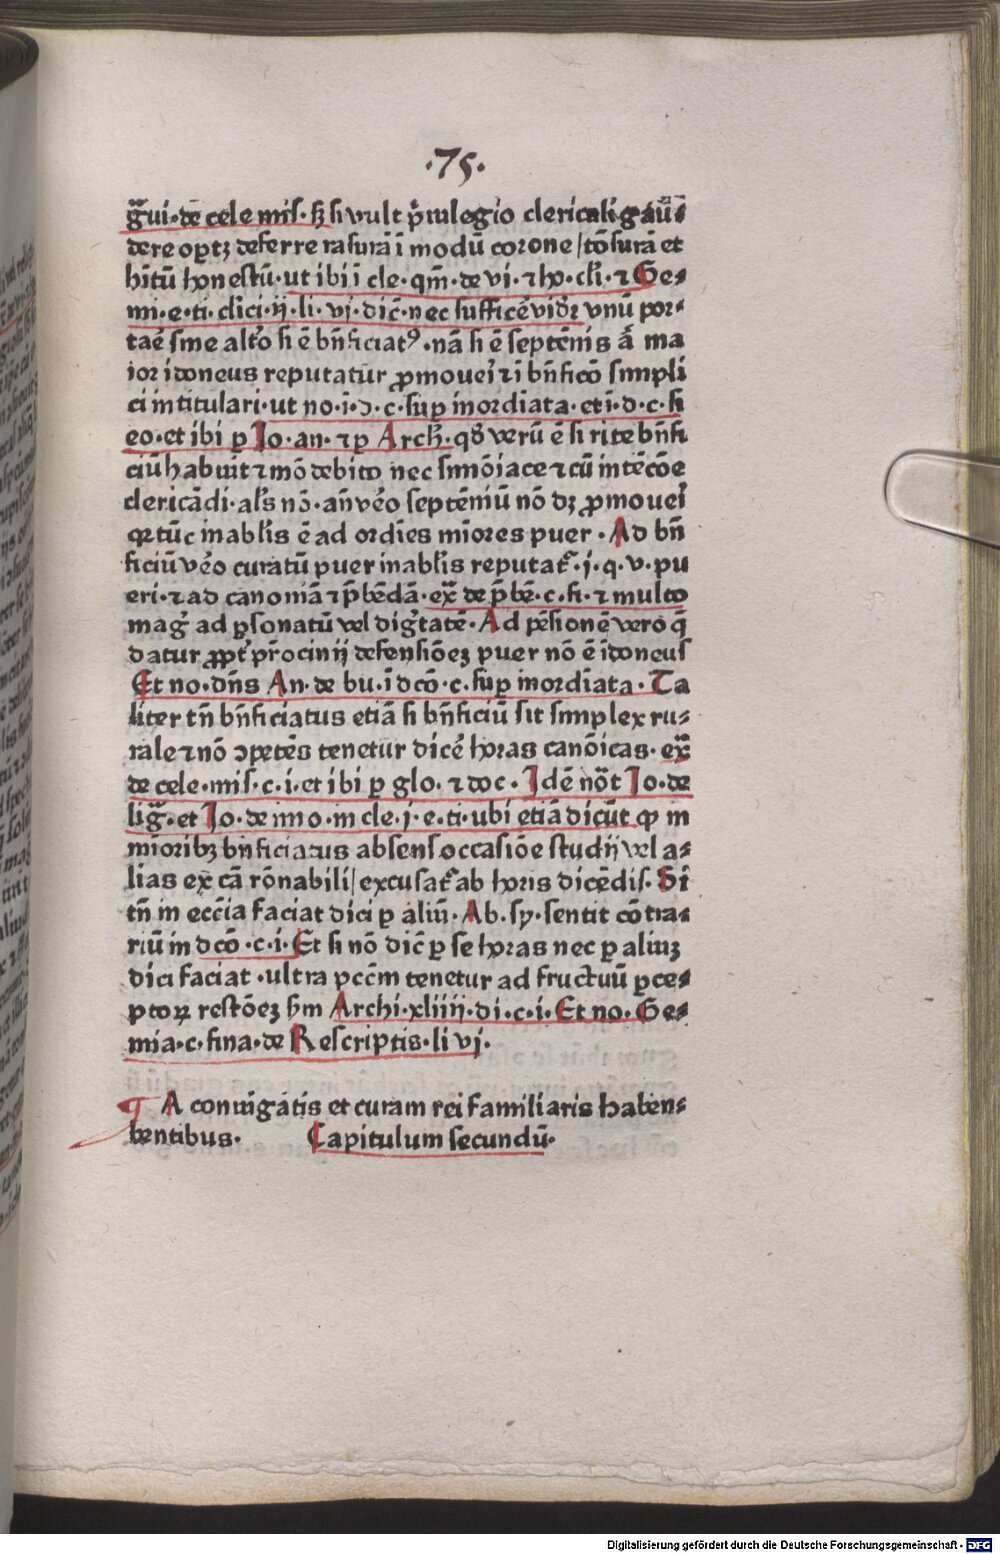 ·75·
g̃ui·de cele mis·sʒ si vult p̃iuilegio clericali gaũ⸗
dere oportʒ deferre rasurã ĩ modũ corone/tõsurã et
hĩtũ honestũ·ut ibi ĩ cle·qm̃·de vi·⁊ ho·cli·⁊ Ge⸗
mi·e·ti·clici·ij·li·vj·dic̃·nec sufficẽ vidr̃ vnũ por⸗
tae᷑ sine alto᷑ si ẽ bñficiatꝰ·nã si ẽ septẽnis ma
ior idoneus reputatur ꝓmoueri ⁊ ĩ bñficõ simpli
ci intitulari·ut no·i·ɔ·c·suꝑ inordiata·et i·d·c·si
eo·et ibi ꝑ Jo·an·⁊ ꝑ Arch̃·qđ verũ ẽ si rite bñfi
ciũ habuit ⁊ mõ debito nec simõiace ⁊ cũ intẽcõe
clericãdi·als̃ nõ·añ ve᷑o septẽniũ nõ dʒ ꝓmoueri
qꝛ tũc inablis ẽ ad ordies mĩores puer·Ad bñ
ficiũ ve᷑o curatũ puer inablis reputat᷑·j·q·v·pu
eri·⁊ ad canoniã ⁊ p̃bẽdã·ex̃ de p̃bẽ·c·fi·⁊ multo
mag᷑ ad ꝑsonatũ vel dig̃tatẽ·Ad pẽsionẽ vero q̃
datur ꝓpt᷑ pr̃ocinij defensiõeʒ puer nõ ẽ idoneus
Et no·dñs An·de bu·ĩ dcõ·c·suꝑ inordĩata·Ta
liter tñ bñficiatus etiã si bñficiũ sit simplex ru⸗
rale ⁊ nõ ɔpetẽs tenetur dice᷑ horas canõicas·ex̃
de cele·mis·c·i·et ibi ꝑ glo·⁊ doc·Jdẽ nõt Jo·de
lig̃·et Jo·de imo·in cle·j·e·ti·ubi etiã dicũt ꝙ in
mĩoribʒ bñficiatus absens occasiõe studij vel a⸗
lias ex cã rõnabili/excusat᷑ ab horis dicẽdis·Si
tñ in ecc̃ia faciat dici ꝑ aliũ·Ab·sy·sentit cõtra⸗
riũ in dcõ·c·i·Et si nõ dic̃ ꝑ se horas nec ꝑ aliuʒ
dici faciat·ultra pcc̃m tenetur ad fructuũ ꝑce⸗
ptoꝝ restõeʒ sm̃ Archi·xliiij·di·c·i·Et no·Ge⸗
mia·c·fina·de Rescriptis·li vj·
¶ A coniugatis et curam rei familiaris haben⸗
bentibus· Capitulum secundũ·
Digitalisierung gefördert durch die Deutsche Forschungsgemeinschaft · DFG